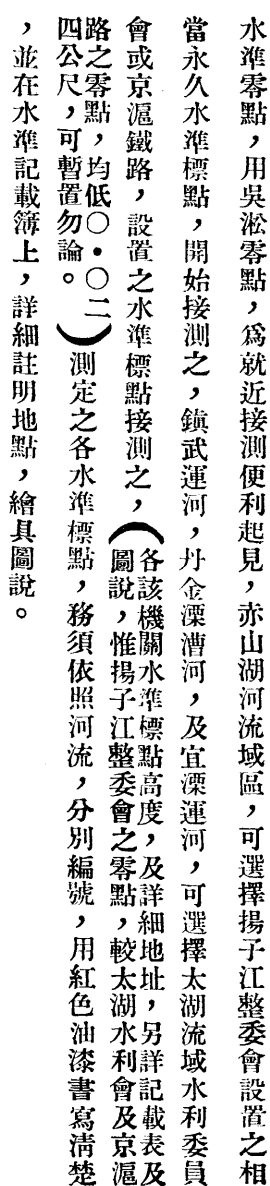 水準零點，用吳淞零點，爲就近接測便利起見，赤山湖河流域區，可選擇揚子江整委會設置之相
當永久水準標點，開始接測之，鎮武運河，丹金溧漕河，及宜溧運河，可選擇太湖流域水利委員
會或京滬鐵路，設置之水準標點接測之，（各該機關水準標點高度，及詳細地址，另詳記載表及
圖說，惟揚子江整委會之零點，較太湖水利會及京滬
路之零點，均低〇・〇二
四公尺，可暫置勿論。）測定之各水準標點，務須依照河流，分別編號，用紅色油漆書寫清楚
，並在水準記載簿上，詳細註明地點，繪具圖說。